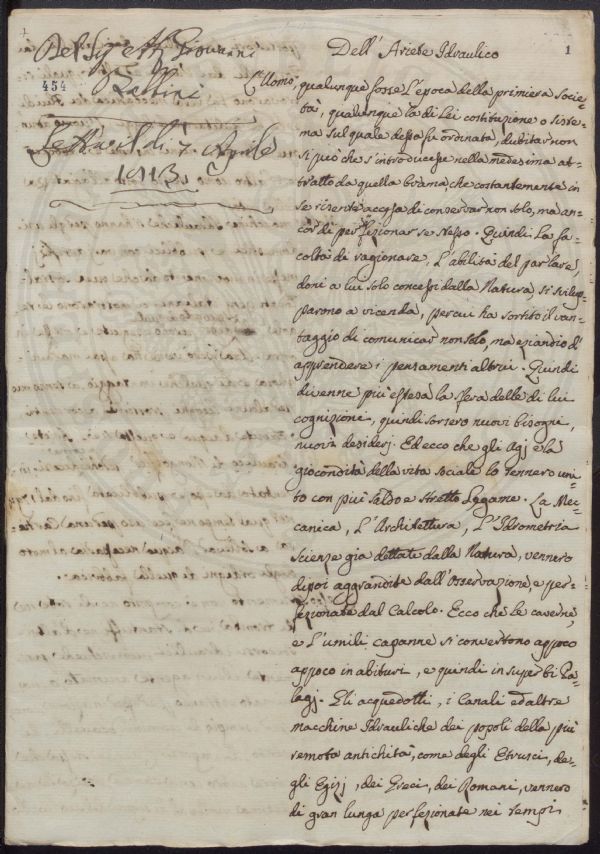 Dell'Ariete Idraulico
1
Del Sig. Giovanni
454
Lettura il dì 7 Aprile
1813.
L'Uomo, qualunque fosse l'epoca della primiera Socie-
tà, qualunque la di Lei costituzione o siste-
ma sul quale dessa fu ordinata, dubitar non
si può che s'introducesse nella medesima at-
tratto da quella brama che costantemente in
se risente accesa di conservar non solo, ma an-
cor di perfezionar se stesso. Quindi La fa-
coltà di ragionare, l'abilità del parlare,
doni a lui solo concessi dalla Natura, si svilup-
parono a vicenda, per cui ha sortito il van-
taggio di comunicar non solo, ma eziandio d'
apprendere i pensamenti altrui. Quindi
divenne più estesa la sfera delle di lui
cognizioni, quindi sorsero nuovi bisogni,
nuovi desiderj. Ed ecco che gli Agj e la
giocondità della vita sociale lo tennero uni-
to con più saldo e stretto Legame. La Mec-
canica, l'Architettura, l'Idrometria
scienze già dettate dalla Natura, vennero
dipoi aggrandite dall'osservazione, e per-
fezionate dal Calcolo. Ecco che le caverne,
e l'umili capanne si convertono appoco
appoco in abituri, e quindi in superbi Pa-
lagj. Gli acquedotti, i Canali ed altre
macchine Idrauliche dei popoli della più
remota antichità, come degli Etrusci, de-
gli Egizj, dei Greci, dei Romani, vennero
di gran lunga perfezionate nei tempi